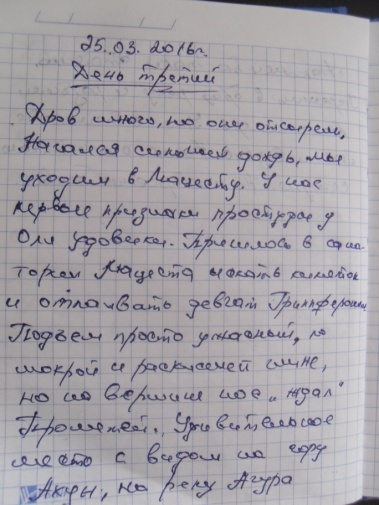 25.03.2016г.
День третий
Дров много, но они отсырели.
Начался сильный дождь, мы
уходим в Мацесту. У нас
первые признаки простуды у
Оли Удовенки. Пришлось в сана
тории Мацеста искать кипяток
и отпаивать девчат Гриппфероном
Подъем просто ужасный, по
мокрой и раскисшей глине,
но на вершине нас „ждал"
Прометей. Удивительное
место с видом на гору
Ахун, на реку Агура